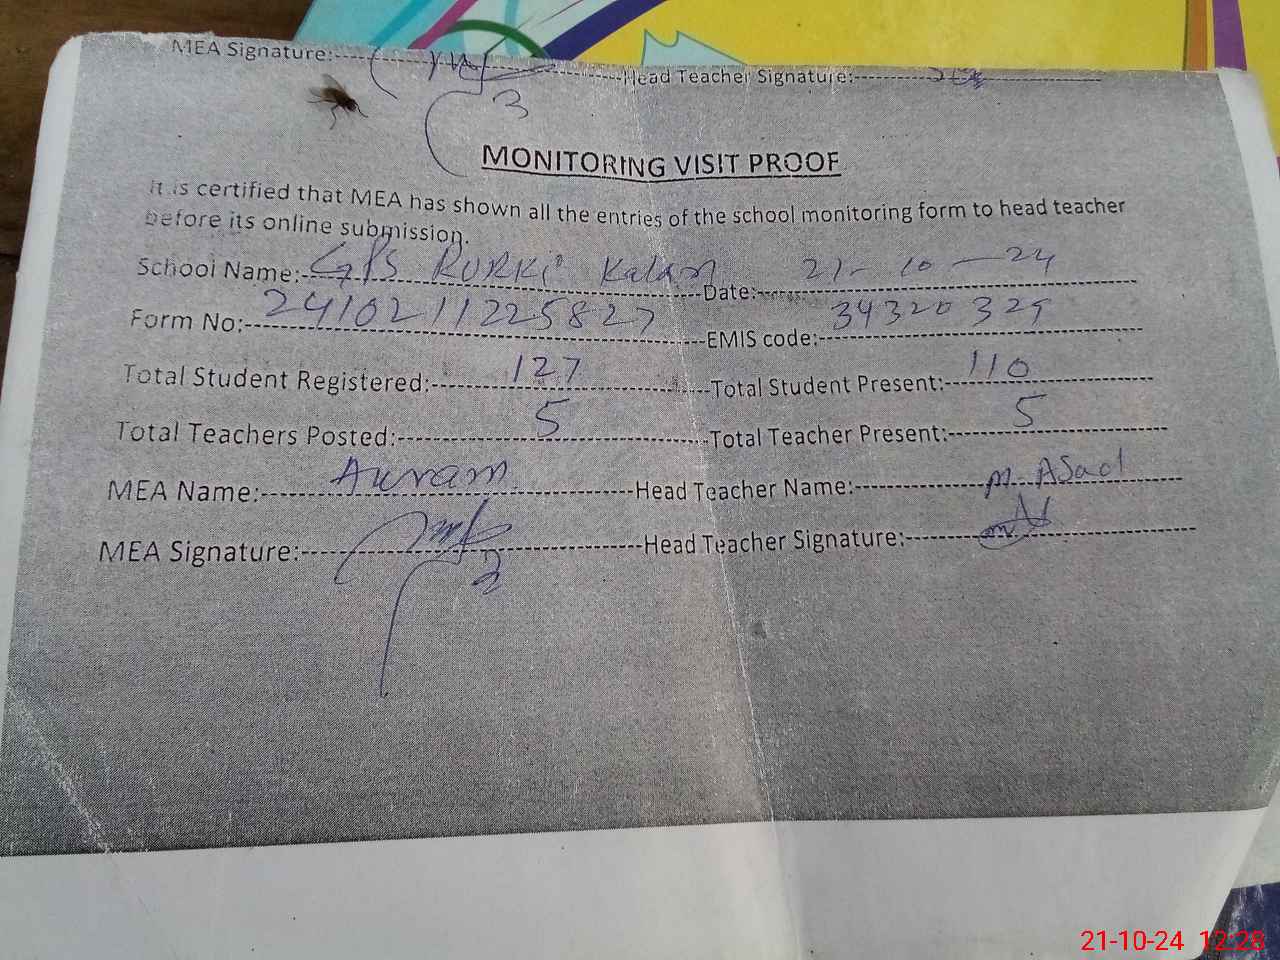 MEA Signature:------Head Teacher Signature:------
3
MONITORING VISIT PROOF
It is certified that MEA has shown all the entries of the school monitoring form to head teacher
before its online submission.
School Name:------GPS RURKi Kalan------Date:------21-10-24
Form No:------2410211225827------EMIS code:------34320329
Total Student Registered:------127------Total Student Present:------110
Total Teachers Posted:------5------Total Teacher Present:------5
MEA Name:------Akram------Head Teacher Name:------M. ASad
MEA Signature:------Head Teacher Signature:------
3
21-10-24 12:28